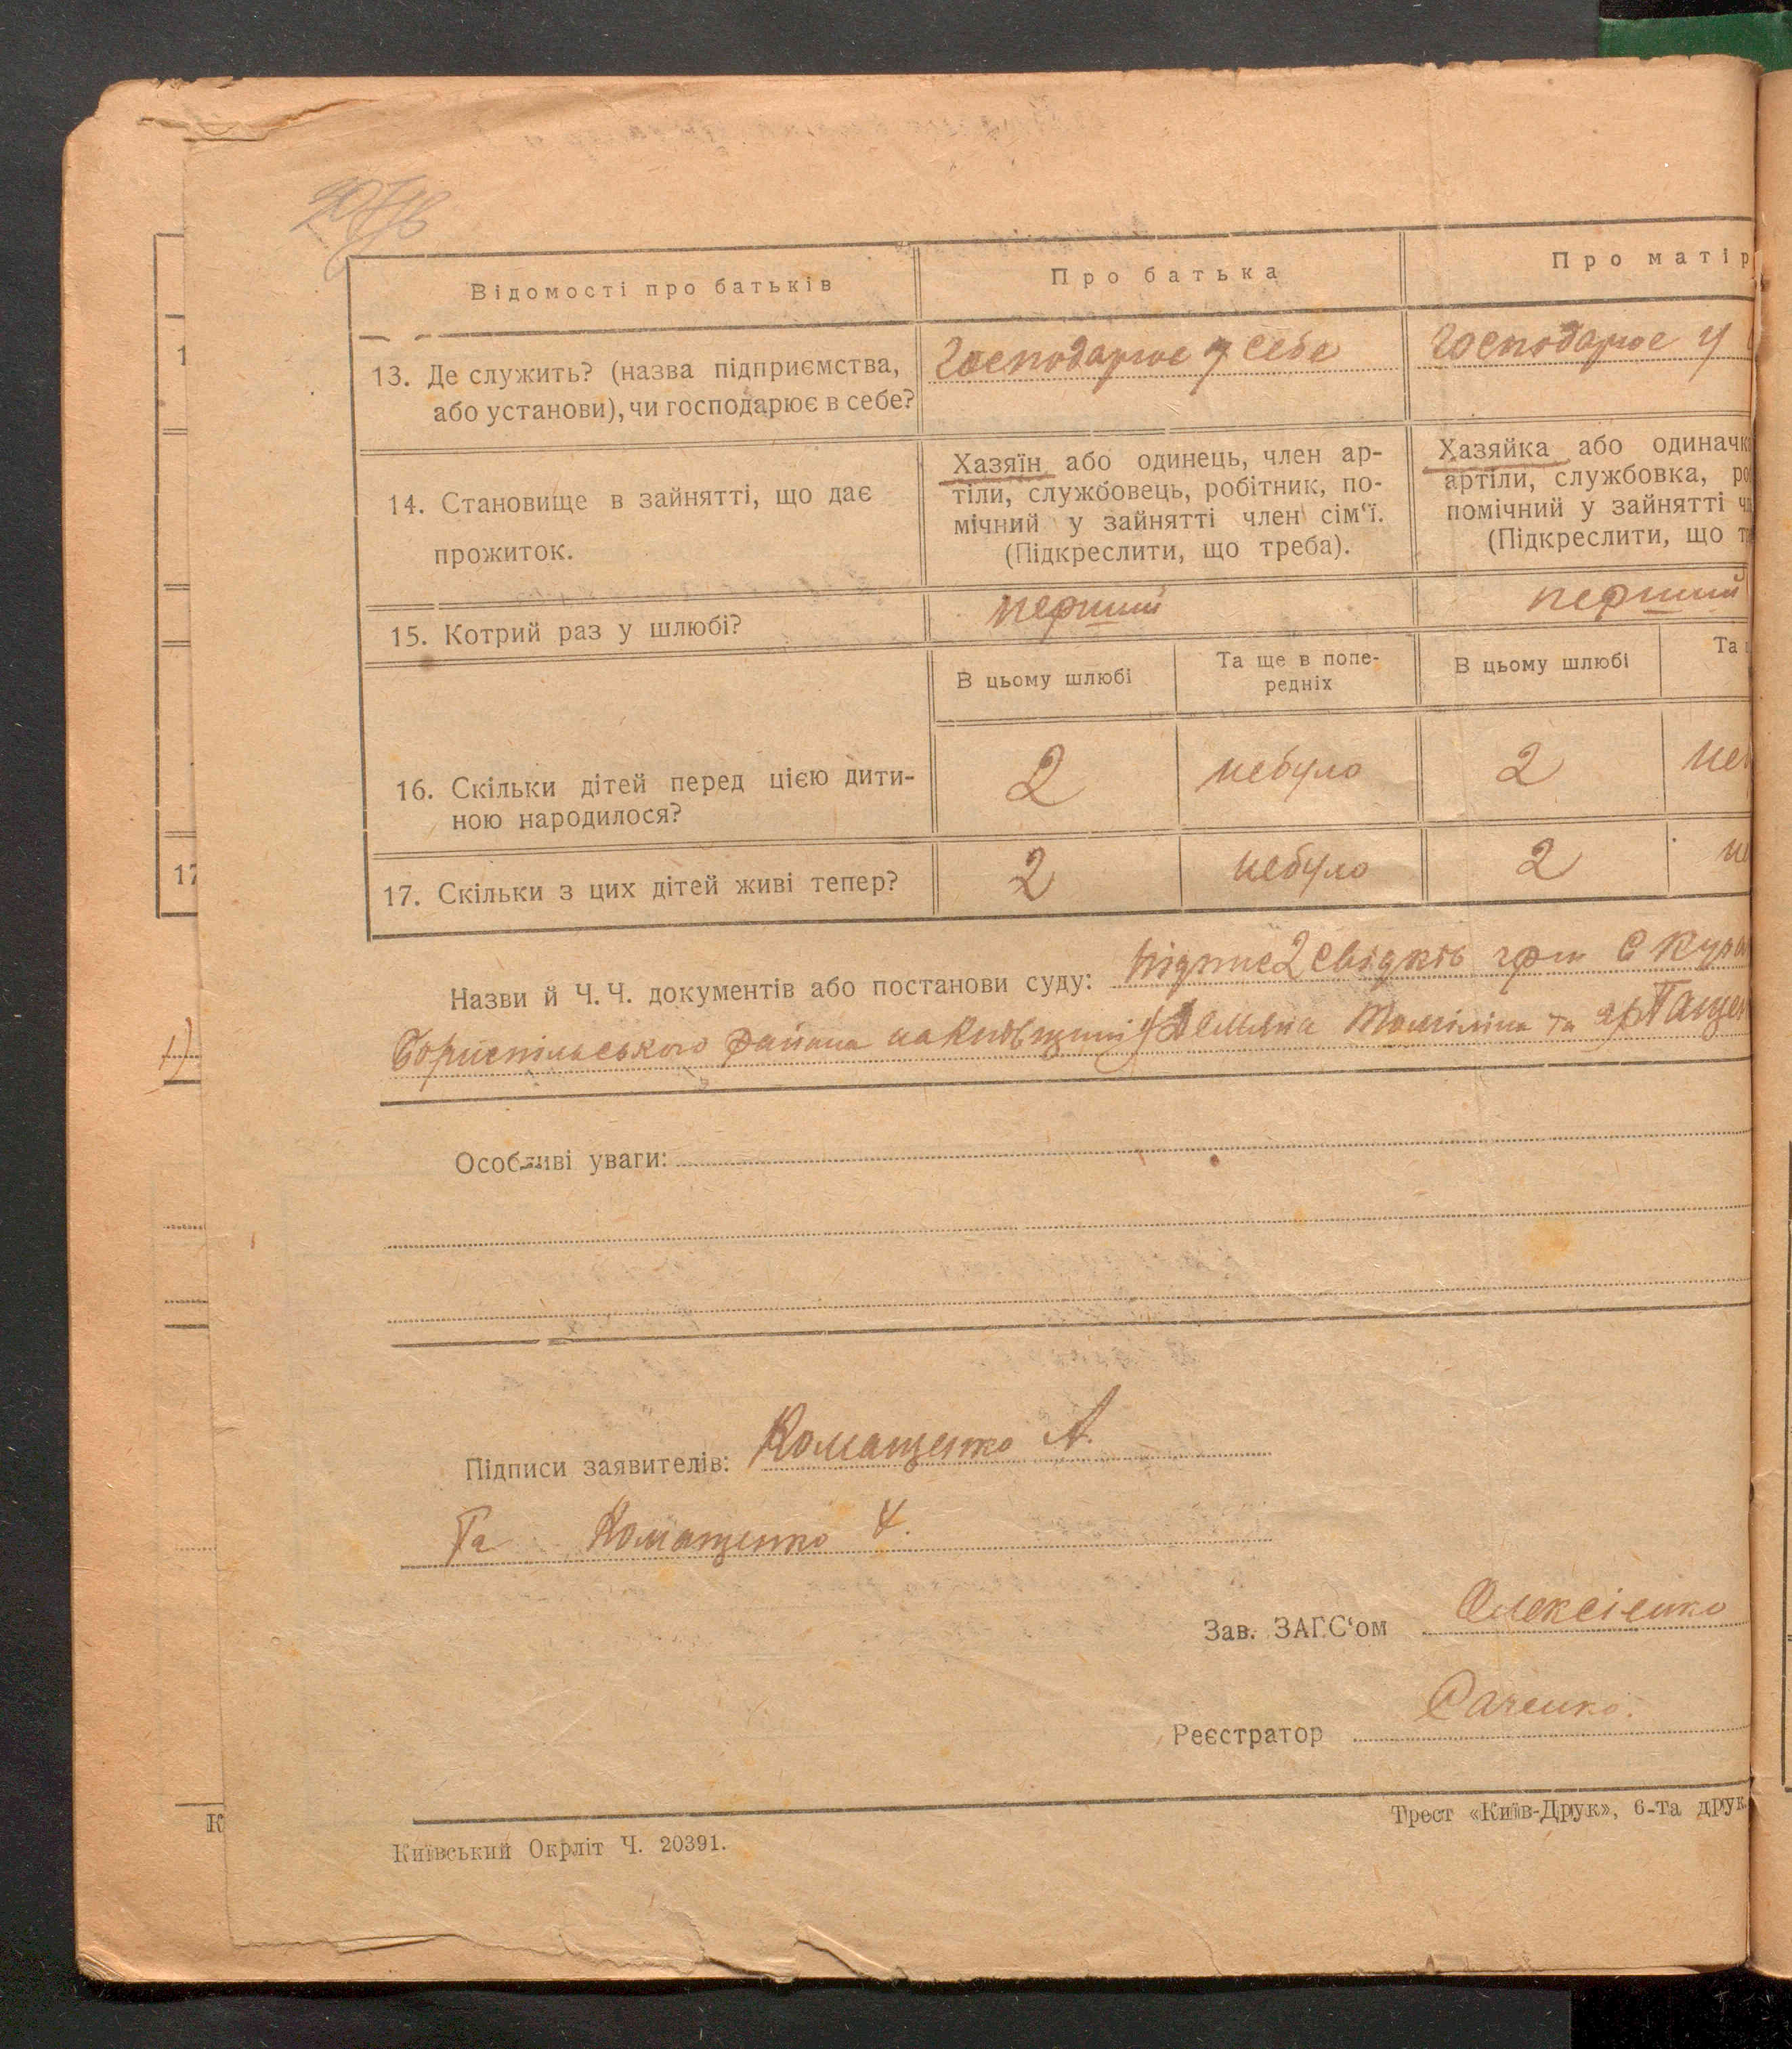 Відомості про батьків
Про батька
Про матір
13. Де служить? (назва підприємства,
або установи), чи господарює в себе?
господарює у себе
господарює у
14. Становище в зайнятті, що дає
прожиток.
Хазяїн або одинець, член ар-
тіли, службовець, робітник, по-
мічний у зайнятті член сім‘ї.
(Підкреслити, що треба).
Хазяйка або одиначка
артіли, службовка,
помічний у зайнятті
(Підкреслити, що
15. Котрий раз у шлюбі?
перший
перший
В цьому шлюбі
Та ще в попе-
редніх
В цьому шлюбі
Та
16. Скільки дітей перед цією дити-
ною народилося?
2
небуло
2
17. Скільки з цих дітей живі тепер?
2
небуло
2
17
1
Назви й Ч. Ч. документів або постанови суду: підпис 2 свідків гр-н С
Бориспільського района на Київщині та гр
Особливі уваги:
Підписи заявителів: Комащенко А.
Та Комащенко У.
Зав. ЗАГС‘ом Олексієнко
Реєстратор Саченко.
К
Київський Окрліт Ч. 20391.
Трест «Київ-Друк», 6-та друк